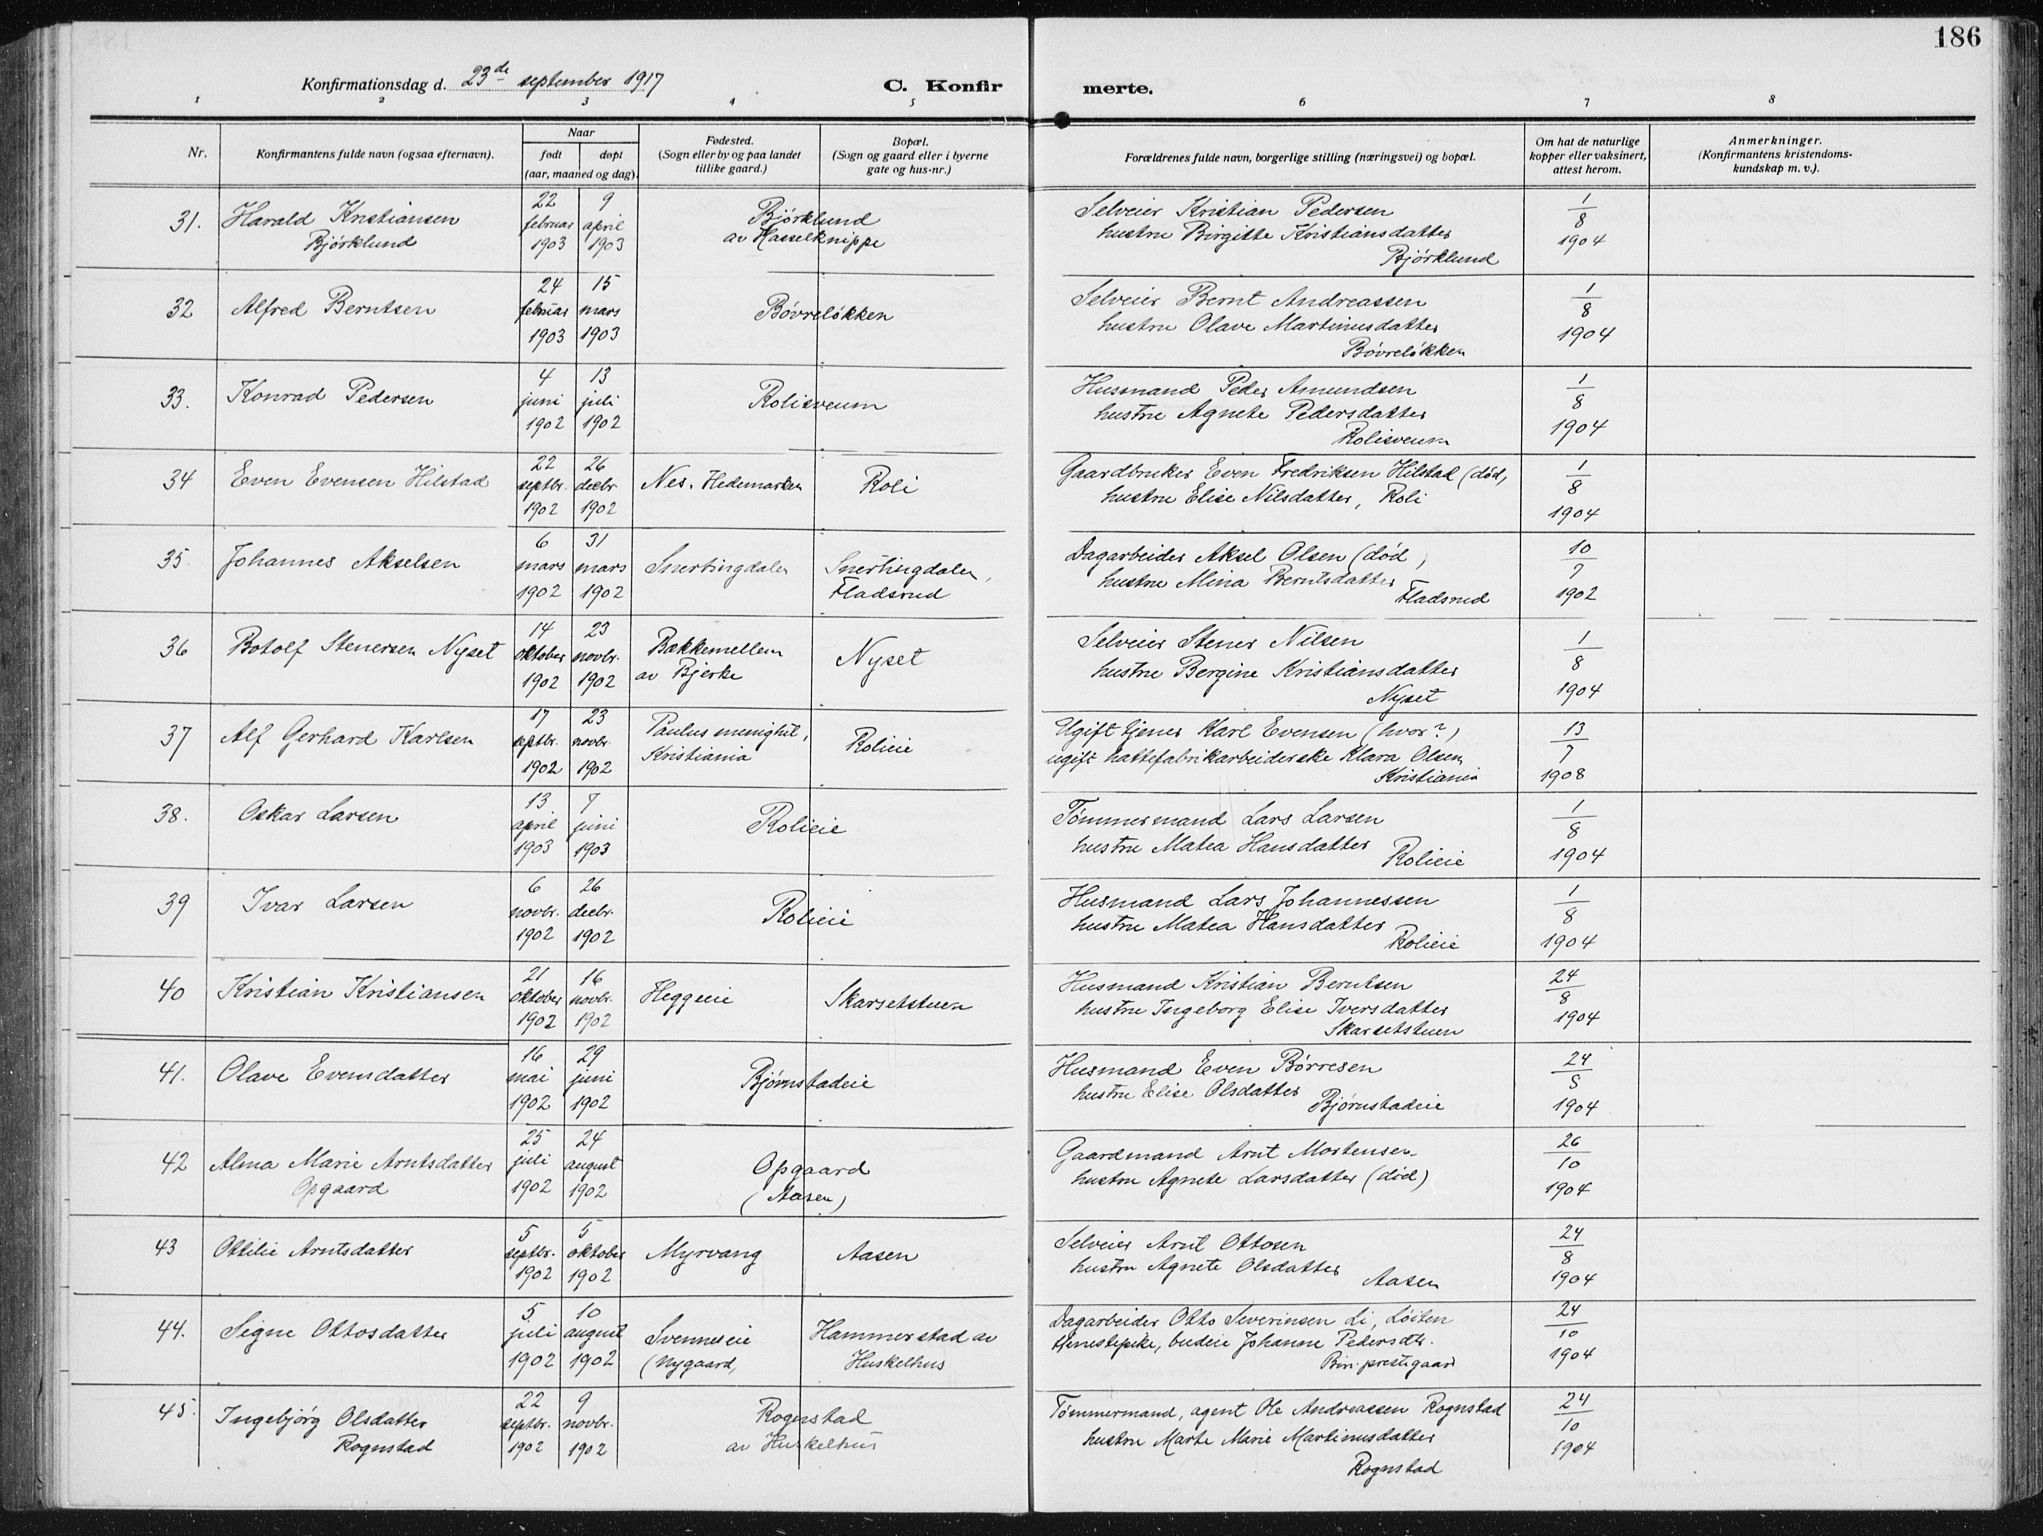 186
Konfirmationsdag d. 23de september 1917
C. Konfirmerte.
1 2 3 4 5 6 7 8
Nr.
Konfirmantens fulde navn (ogsaa efternavn).
Naar
født døpt
(aar, maaned og dag).
Fødested.
(Sogn eller by og paa landet
tillike gaard.)
Bopæl.
(Sogn og gaard eller i byerne
gate og hus-nr.)
Forældrenes fulde navn, borgerlige stilling (næringsvei) og bopæl.
Om hat de naturlige
kopper eller vaksinert,
attest herom.
Anmerkninger.
(Konfirmantens kristendoms-
kundskap m. v.).
31. Harald Kristiansen
Bjørklund
22 februar 1903
9 april 1903
Bjørklund
av Hasselknippe
Selveier Kristian Pedersen
hustru Birgitte Kristiansdatter
Bjørklund
1/8 1904
32 Alfred Berntsen
24 februar 1903
15 mars 1903
Bøvreløkken
Selveier Bernt Andreassen
hustru Olave Martinusdatter
Bøvreløkken
1/8 1904
33. Konrad Pedersen
4 juni 1902
13 juli 1902
Rolisveum
Husmand Peder Amundsen
hustru Agnete Pedersdatter
Rolisveum
1/8 1904
34 Even Evensen Hilstad
22 septbr. 1902
26 decbr. 1902
Nes. Hedemarken
Roli
Gaardbruker Even Fredriksen Hilstad (død,
hustru Elise Nilsdatter, Roli
1/8 1904
35 Johannes Akselsen
6 mars 1902
31 mars 1902
Snertingdalen
Snertingdalen,
Fladsrud
Dagarbeider Aksel Olsen (død,
hustru Mina Berntsdatter
Fladsrud
10/7 1902
36 Botolf Stenersen Nyset
14 oktober 1902
23 novbr. 1902
Bakkemellem
av Bjerke
Nyset
Selveier Stener Nilsen
hustru Bergine Kristiansdatter
Nyset
1/8 1904
37 Alf Gerhard Karlsen
17 septbr. 1902
23 novbr. 1902
Paulus menighet,
Kristiania
Rolieie
Ugift tjener Karl Evensen (hvor?)
ugift hattefabrikarbeiderske Klara Olsen
Kristiania
13/7 1908
38. Oskar Larsen
13 april 1903
7 juni 1903
Rolieie
Tømmermand Lars Larsen
hustru Matea Hansdatter
Rolieie
1/8 1904
39 Ivar Larsen
6 novbr. 1902
26 decbr. 1902
Rolieie
Husmand Lars Johannessen
hustru Matea Hansdatter
Rolieie
1/8 1904
40 Kristian Kristiansen
21 oktober 1902
16 novbr. 1902
Heggeeie
Skarsetstuen
Husmand Kristian Berntsen
hustru Ingeborg Elise Iversdatter
Skarsetstuen
24/8 1904
41. Olave Evensdatter
16 mai 1902
29 juni 1902
Bjørnstadeie
Husmand Even Børresen
hustru Elise Olsdatter
Bjørnstadeie
24/8 1904
42 Alma Marie Arntsdatter
Opgaard
25 juli 1902
24 august 1902
Opgaard
(Aasen)
Gaardmand Arnt Mortensen
hustru Agnete Larsdatter (død)
26/10 1904
43 Ottilie Arntsdatter
5 septbr. 1902
5 oktober 1902
Myrvang
Aasen
Selveier Arnt Ottosen
hustru Agnete Olsdatter
Aasen
24/8 1904
44. Signe Ottosdatter
5 juli 1902
10 august 1902
Svenneseie
(Nygaard,
Hammerstad av
Huskelhus
Dagarbeider Otto Severinsen Li, Løiten
tjenestepike, budeie Johanne Pedersdtr.
Biri prestegaard
24/10 1904
45. Ingebjørg Olsdatter
Rognstad
22 septbr. 1902
9 novbr. 1902
Rognstad
av Huskelhus
Tømmermand, agent Ole Andreassen Rognstad
hustru Marte Marie Martinusdatter
Rognstad
24/10 1904